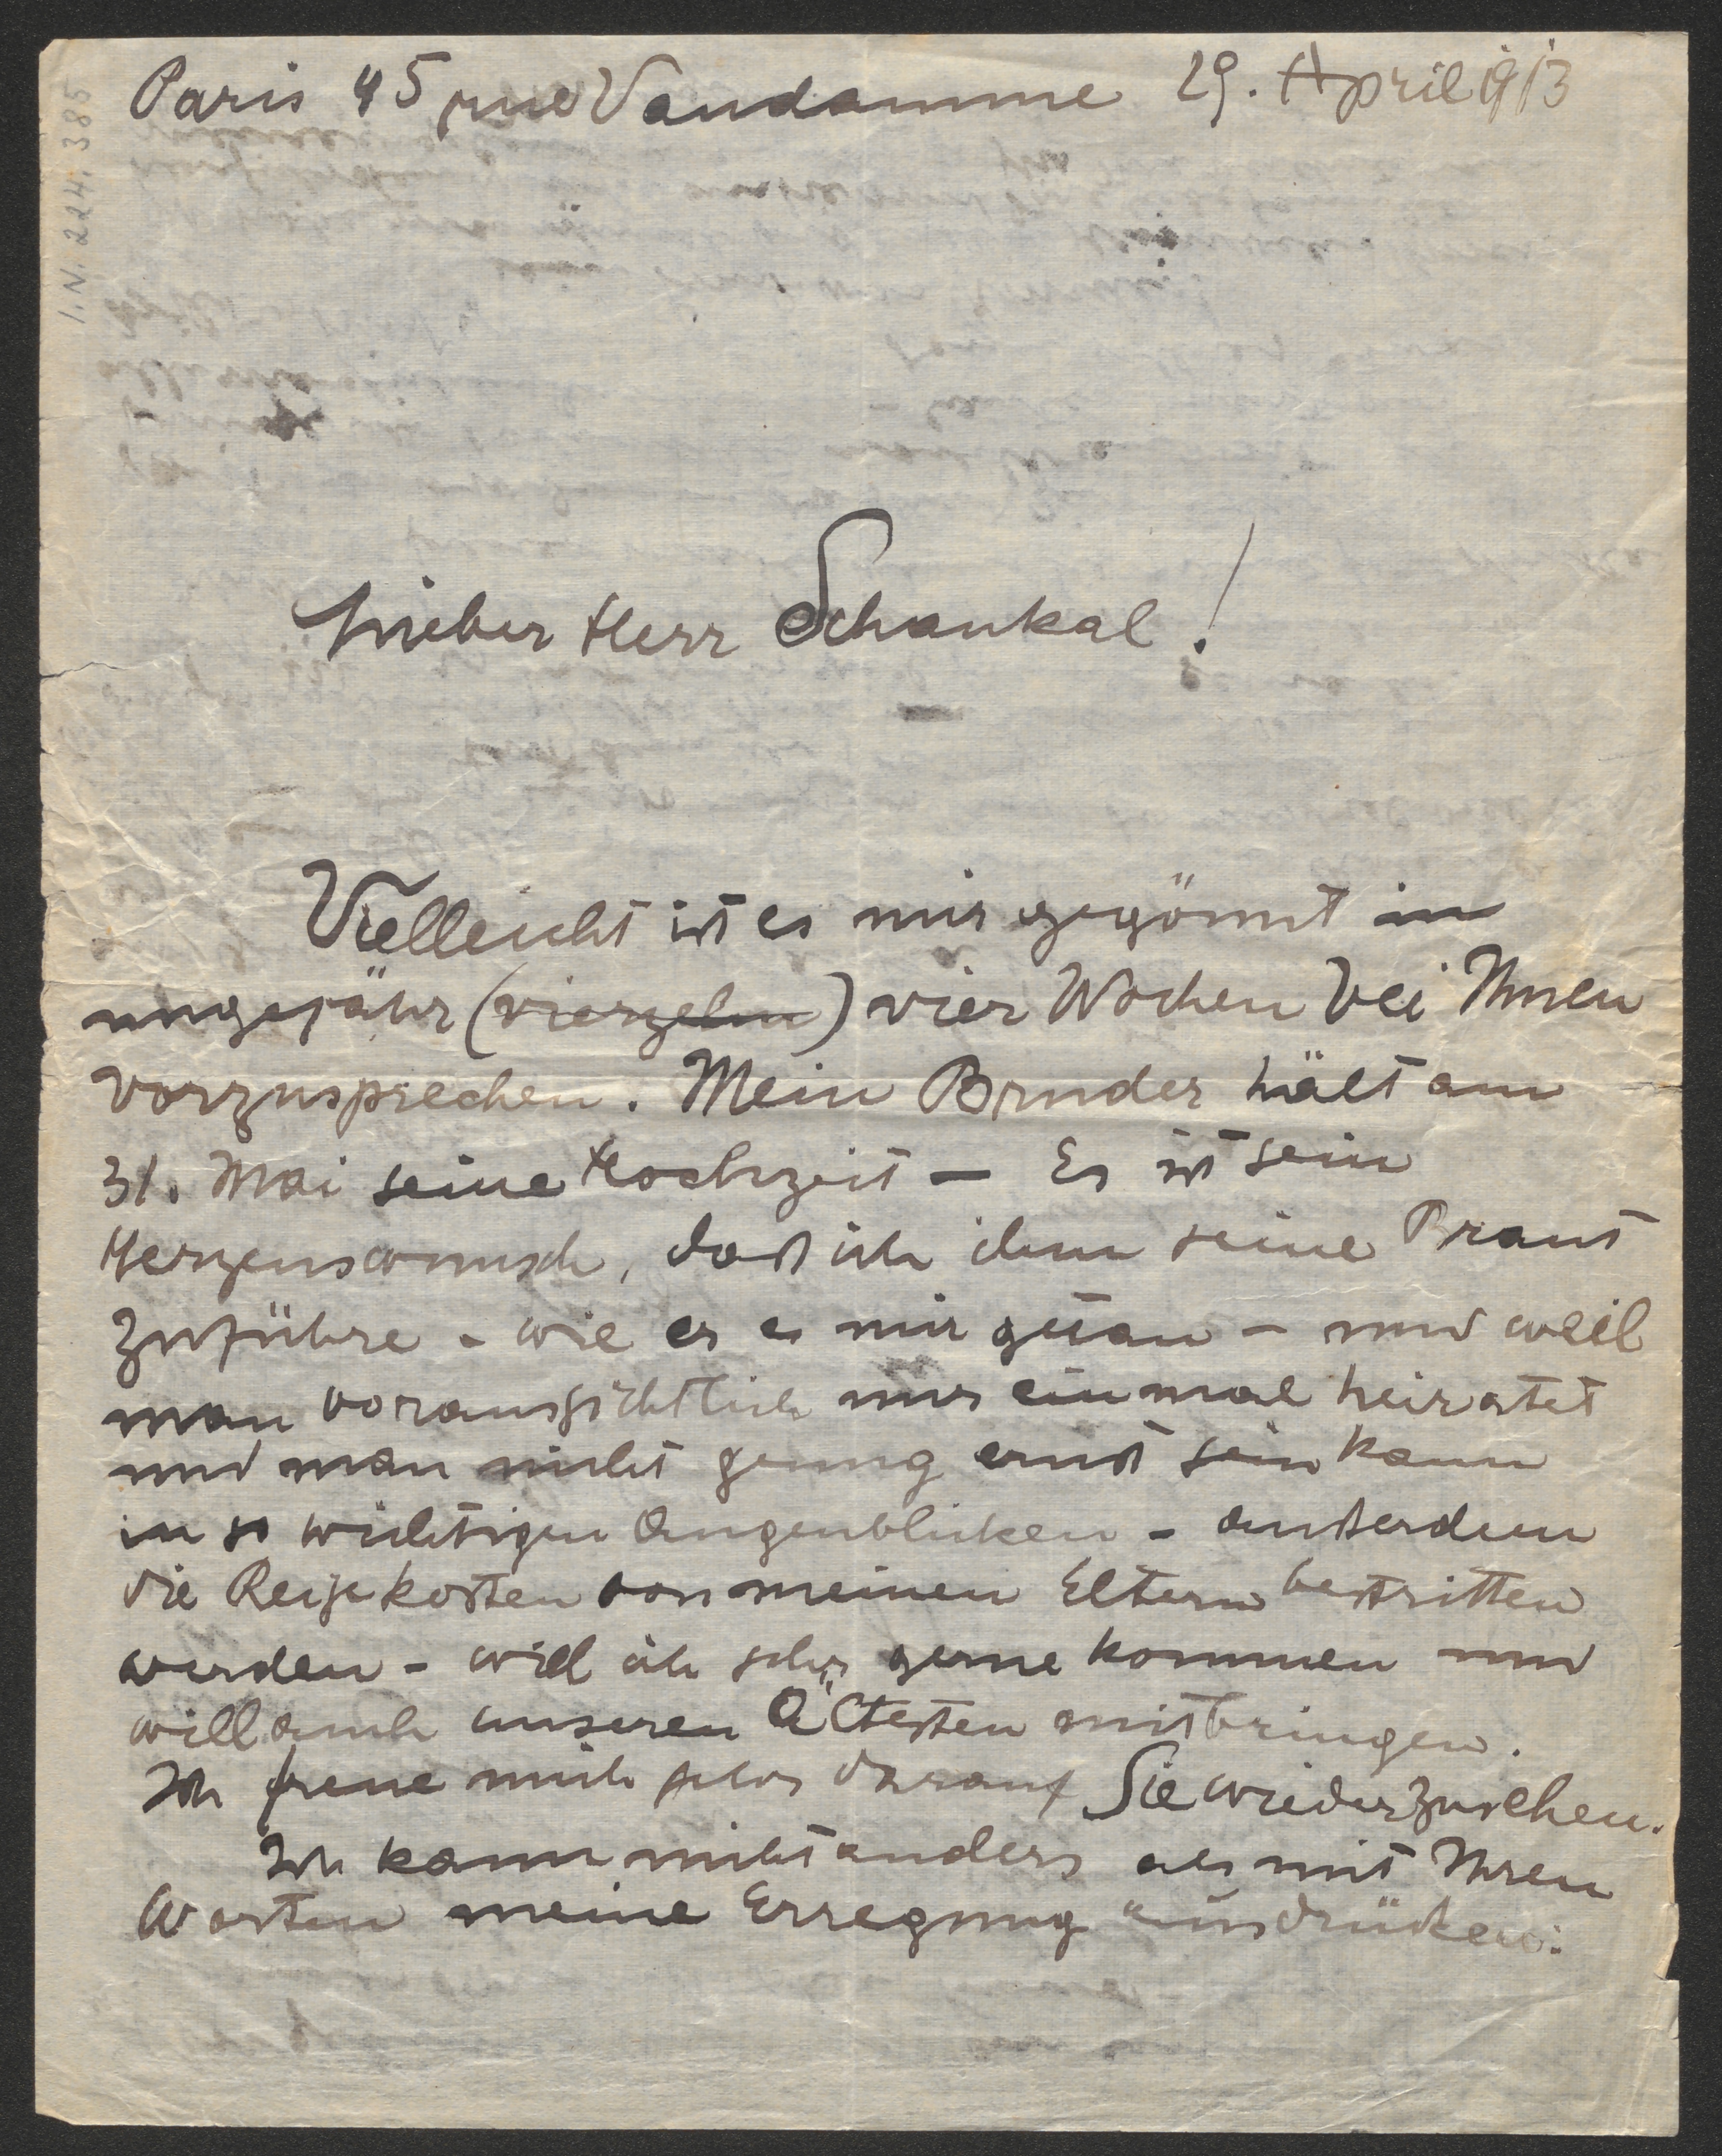 Paris 45 rue Vandamme 29. April 1913
I.N. 224.385
Lieber Herr Schaukal!
Vielleicht ist es mir gegönnt in
ungefähr (vierzehn) vier Wochen bei Ihnen
vorzusprechen. Mein Bruder hält am
31. Mai seine Hochzeit – Es ist sein
Herzenswunsch, daß ich ihm seine Braut
zuführe – wie er es mir getan – und weil
man voraussichtlich nur einmal heiratet
und man nicht genug ernst sein kann
in so wichtigen Augenblicken – außerdem
die Reisekosten von meinen Eltern bestritten
werden – will ich sehr gerne kommen und
will auch unseren Ältesten mitbringen.
Ich freue mich schon darauf Sie wiederzusehen.
Ich kann nicht anders als mit Ihren
Worten meine Erregung ausdrücken: